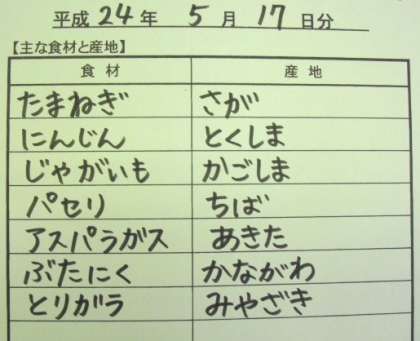 平成 24 年 5 月 17 日分
【主な食材と産地】
食材 産地
たまねぎ さが
にんじん とくしま
じゃがいも かごしま
パセリ ちば
アスパラガス あきた
ぶたにく かながわ
とりガラ みやざき